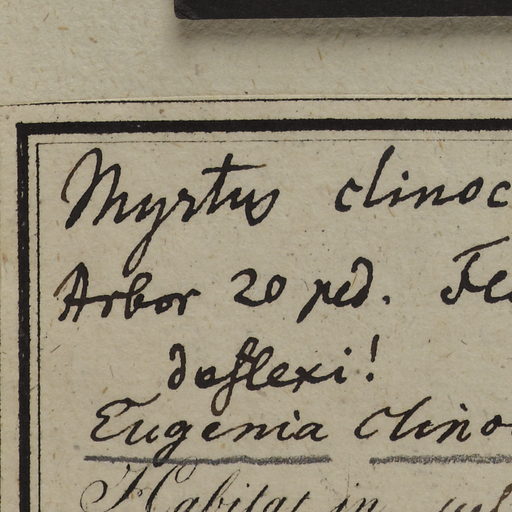 Myrtus clinoc
Arbor 20 ped. Fl
deflexi!
Eugenia clino
Habitat in